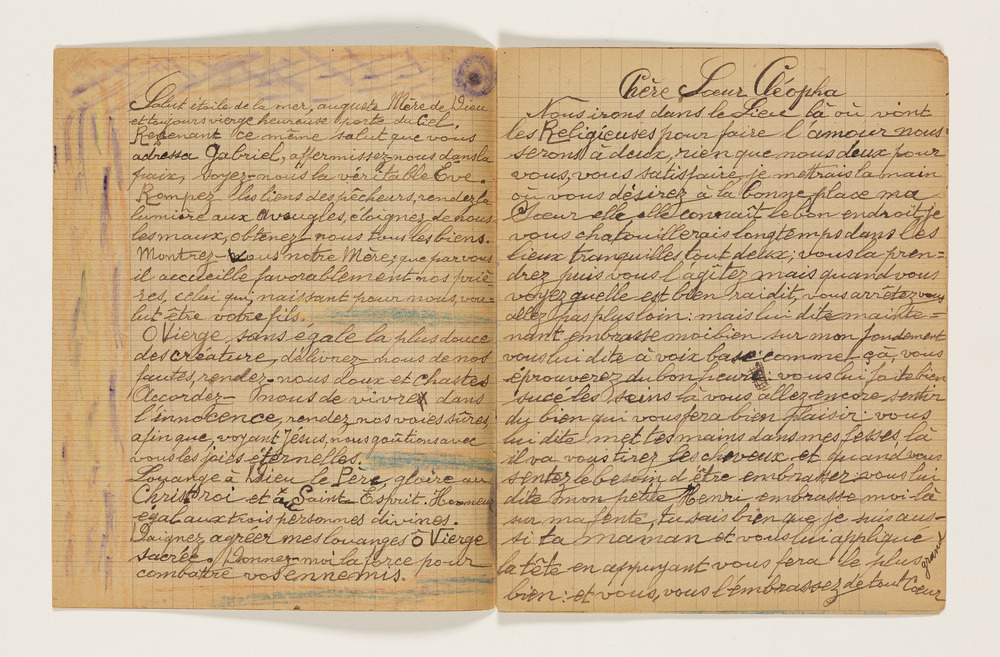 Salut étoile de la mer, auguste Mère de Dieu
et toujours vierge heureuse porte du Ciel.
Recevant ce même salut que vous
adressa Gabriel, affermissez-nous dans la
paix, soyez-nous la véritable Ève.
Rompez les liens des pêcheurs, rendez la
lumière aux aveugles, éloignez de nous
les maux, obtenez-nous tous les biens.
Montrez-vous notre Mère; que par vous
il acceuille favorablement nos priè
res, celui qui, naissant pour nous, vou-
lut être votre fils.
O Vierge, sans egale la plus douce
des créature, délivrez-nous de nos
fautes, rendez-nous doux et chastes
Accordez-nous de vivre dans
l'innocence, rendez nos voies sûres,
afin que, voyant Jésus, nous goûtions avec
vous les joies éternelles.
Louange à Dieu le Père, gloire au
Christ roi et à Saint-Esprit. Honneur
égal aux trois personnes divines.
Daignez agréer mes louanges ô Vierge
sacrée. Donnez-moi la force pour
combattre vos ennemis.
Chère Sœur Cléopha
Nous irons dans le Lieu là où vont
les Religieuses pour faire l'amour nous
serons à deux, rien que nous deux pour
vous, vous satisfaire, je metrais la main
où vous désirez à la bonne place ma
Sœur elle, elle connaît le bon endroit, je
vous chatouillerais longtemps dans les
lieux tranquilles tout deux; vous la pren=
drez puis vous l'agîtez mais quand vous
voyez quelle est bien raidit, vous arrêtez vous
allez pas plus loin: mais lui dite mainte=
nant embrasse moi bien sur mon fondement
vous lui dite à voix base: comme çà, vous
éprouverez du bonheur: vous lui faite bien
sucé les seins là vous allez encore sentir
du bien qui vous fera bien plaisir: vous
lui dite met tes mains dans mes fesses là
il va vous tirez les cheveux et quand vous
sentez le besoin d'être embrasser vous lui
dite mon petite Henri embrasse moi là
sur ma fente, tu sais bien que je suis aus-
si ta maman et vous lui applique
la tête en appuyant vous fera le plus grand
bien: et vous, vous l'embrassez de tout Cœur